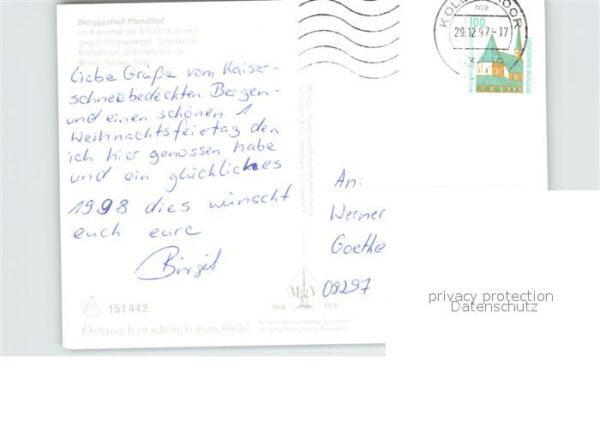 Berggasthof Pfandlhof
im Kaisertal bei A-6330 Kufstein
gegen
Wilder Kaiser, Tirol
Liebe Grüße vom Kaiser-
schneebedeckten Bergen-
und einen schönen 1.
Weihnachtsfeiertag den
ich hier genossen habe
und ein glückliches
1998 dies wünscht
euch eure
Birgit
151442
Österreich ist schön, komm, bleib!
KOL MOOR
29.12.97-17
100
An:
Werner
Goethe
08297
privacy protection
Datenschutz